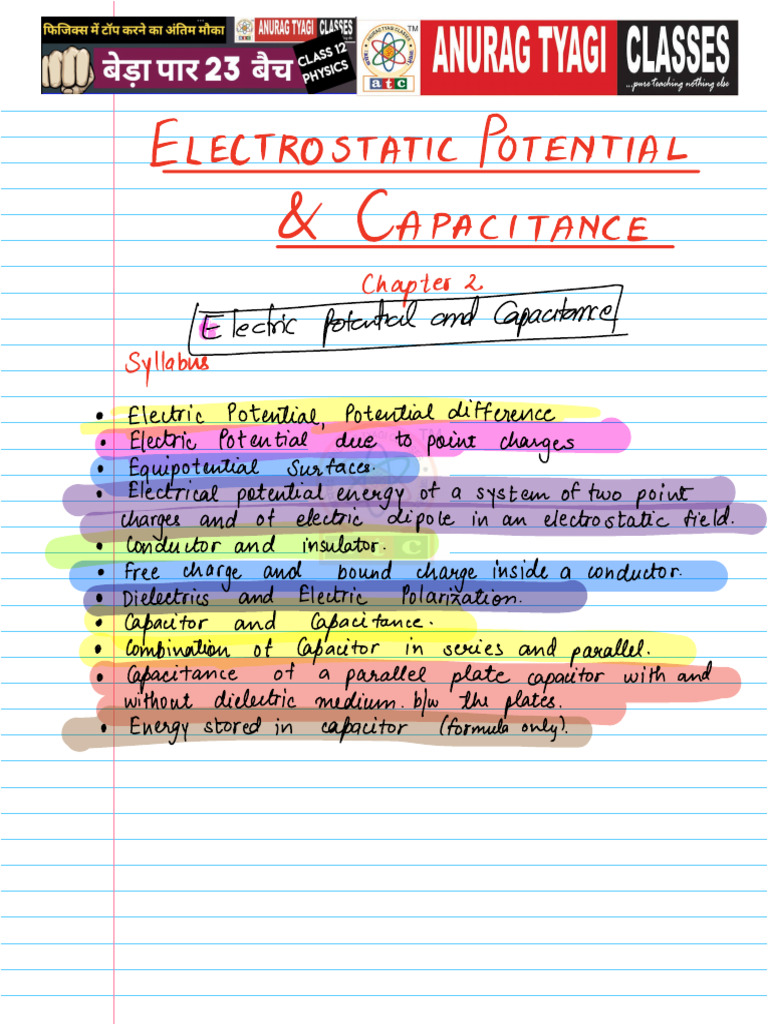 फिजिक्स में टॉप करने का अंतिम मौका
ANURAG TYAGI CLASSES
बेड़ा पार 23 बैच
CLASS 12
PHYSICS
TM
atc
ANURAG TYAGI CLASSES
...pure teaching nothing else
ELECTROSTATIC POTENTIAL
& CAPACITANCE
Chapter 2
Electric Potential and Capacitance
Syllabus
• Electric Potential, Potential difference
• Electric Potential due to point charges
• Equipotential Surfaces.
• Electrical potential energy of a system of two point
charges and of electric dipole in an electrostatic field.
• Conductor and insulator.
• Free charge and bound charge inside a conductor.
• Dielectrics and Electric Polarization.
• Capacitor and Capacitance.
• Combination of Capacitor in series and parallel.
• Capacitance of a parallel plate capacitor with and
without dielectric medium. b/w the plates.
• Energy stored in capacitor (formula only).